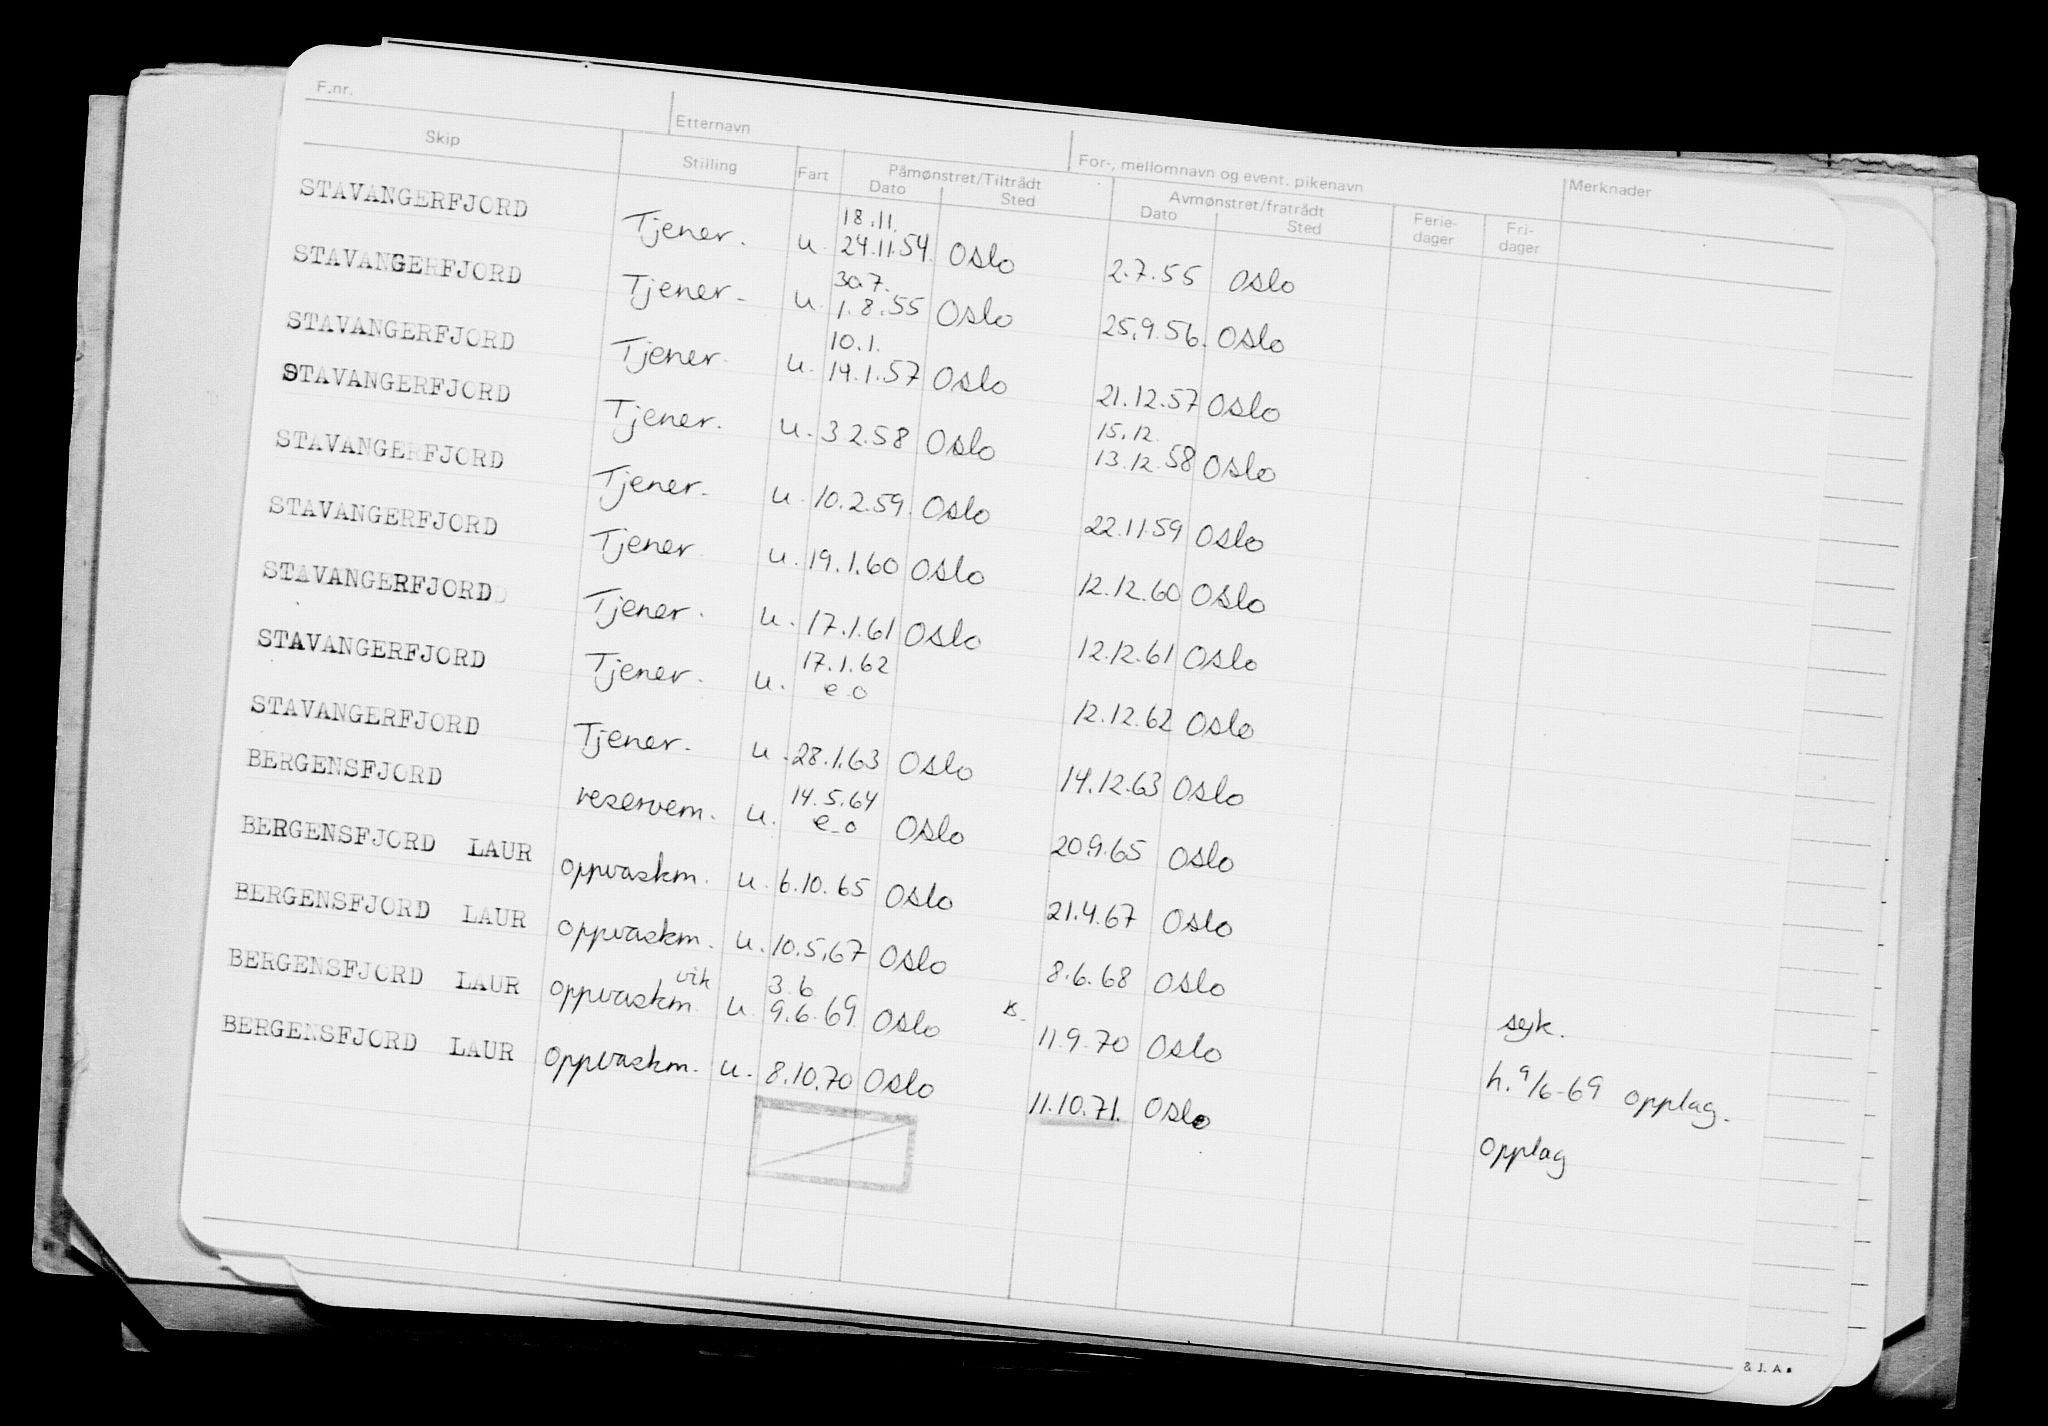 F.nr. Etternavn For-, mellomnavn og event. pikenavn
Skip Stilling Fart Påmønstret/Tiltrådt Avmønstret/fratrådt Ferie- Fri- Merknader
Dato Sted Dato Sted dager dager
18.11.
STAVANGERFJORD Tjener. u. 24.11.54. Oslo 2.7.55 Oslo
30.7.
STAVANGERFJORD Tjener. u. 1.8.55 Oslo 25.9.56. Oslo
10.1.
STAVANGERFJORD Tjener. u. 14.1.57 Oslo 21.12.57 Oslo
15.12.
STAVANGERFJORD Tjener. u. 3 2.58 Oslo 13.12.58 Oslo
STAVANGERFJORD Tjener. u. 10.2.59. Oslo 22.11.59 Oslo
STAVANGERFJORD Tjener. u. 19.1.60 Oslo 12.12.60 Oslo
STAVANGERFJORD Tjener. u. 17.1.61 Oslo 12.12.61 Oslo
17.1.62
STAVANGERFJORD Tjener. u. e.o 12.12.62 Oslo
STAVANGERFJORD Tjener. u. 28.1.63 Oslo 14.12.63 Oslo
14.5.64
BERGENSFJORD reservem. u. e.o Oslo 20.9.65 Oslo
BERGENSFJORD LAUR oppvaskm. u. 6.10.65 Oslo 21.4.67 Oslo
BERGENSFJORD LAUR oppvaskm. u. 10.5.67 Oslo 8.6.68 Oslo sejk.
vik 3.6
BERGENSFJORD LAUR oppvaskm. u. 9.6.69. Oslo 11.9.70 Oslo h. 9/6-69 opplag.
BERGENSFJORD LAUR oppvaskm. u. 8.10.70 Oslo 11.10.71. Oslo opplag
& J. A.